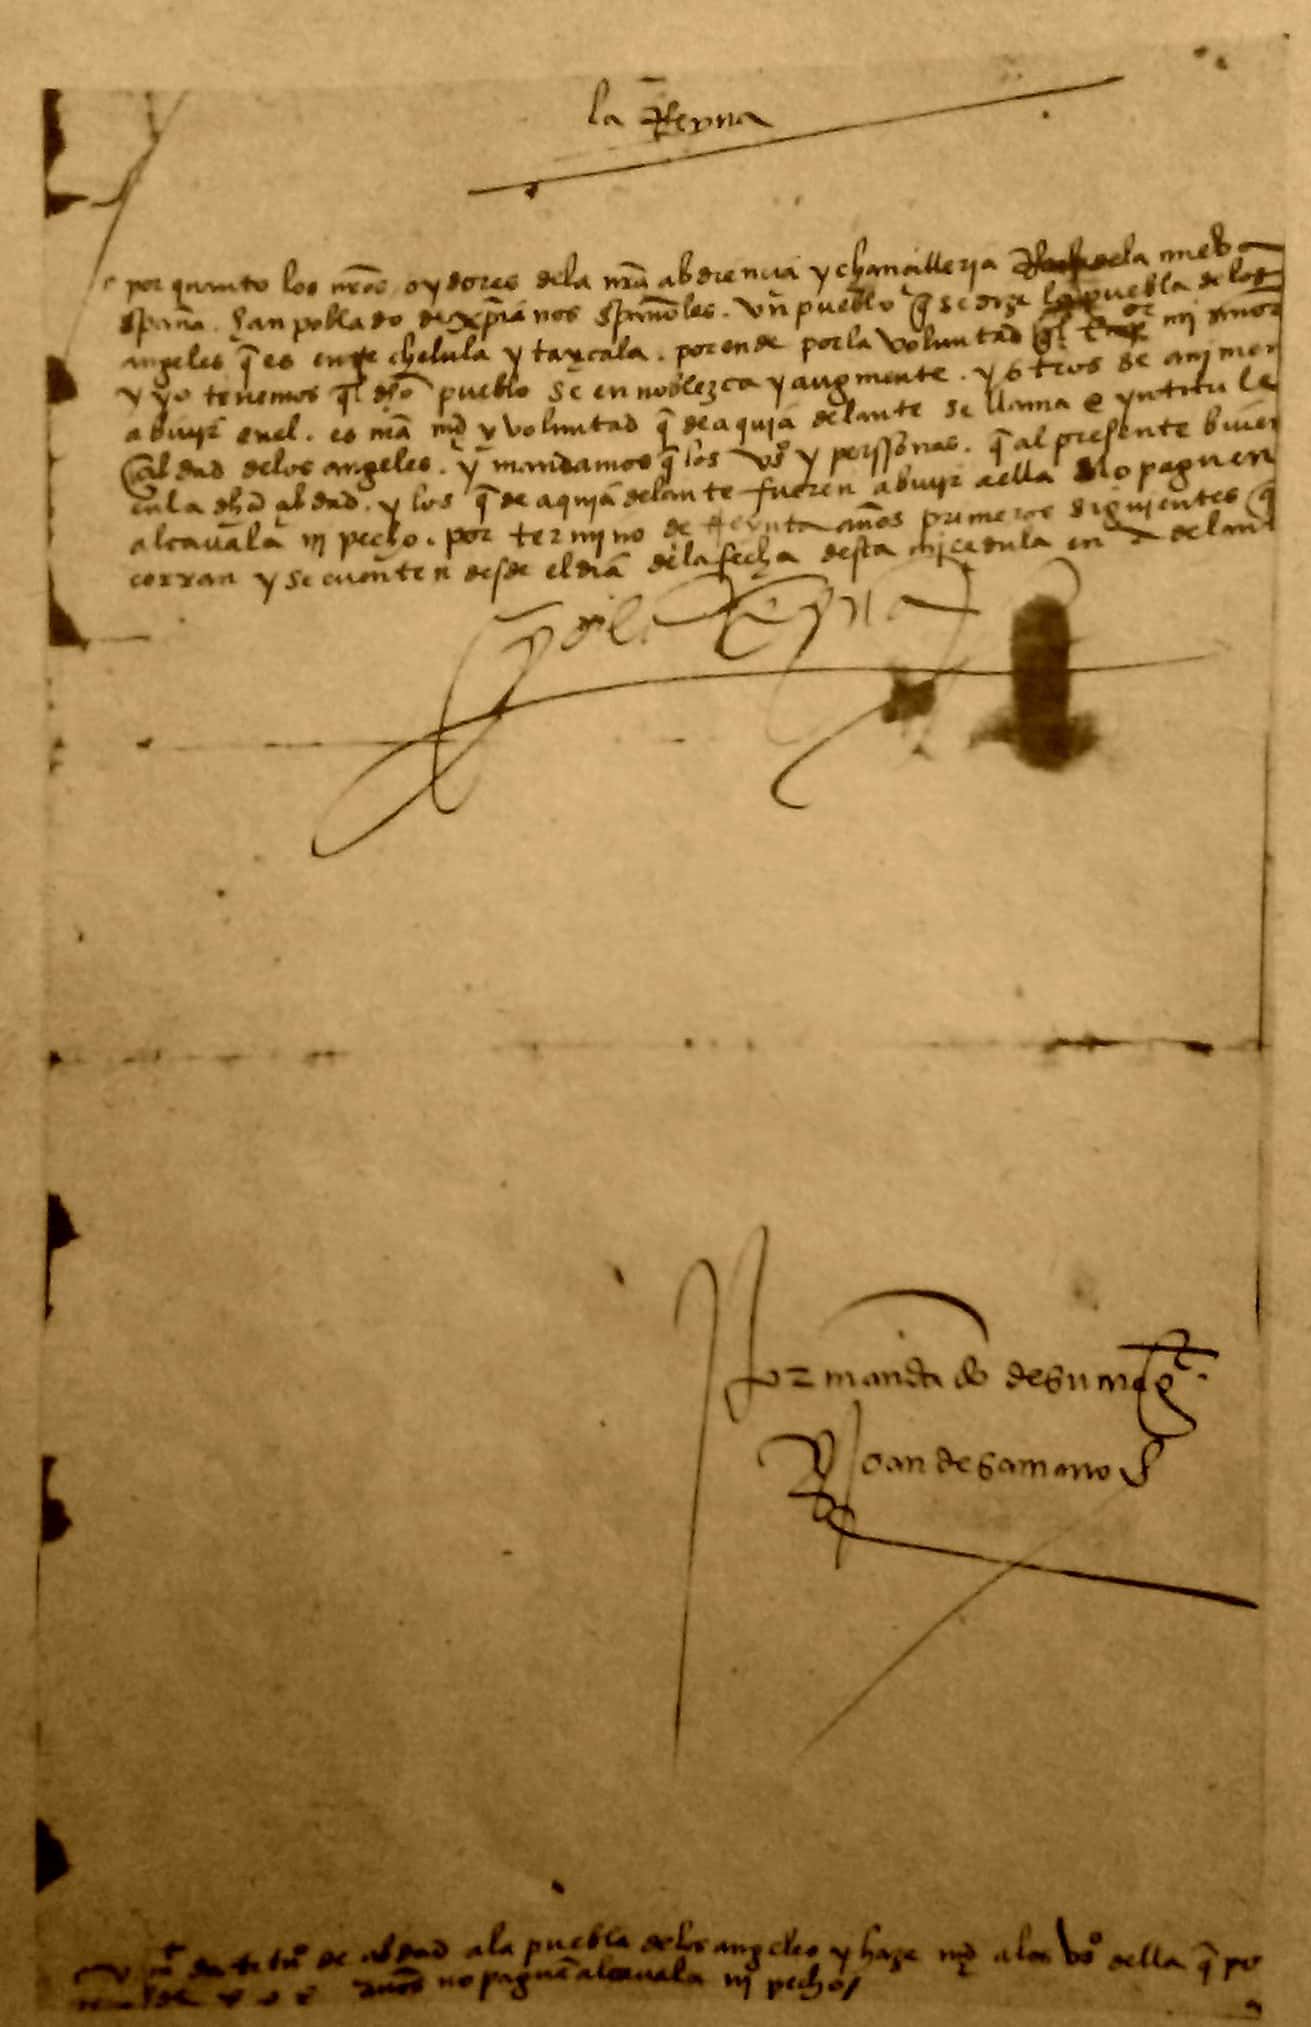 la Reyna
por quanto los nr̃os oydores dela nr̃a abdiencia y chancilleria dela nueba
españa. han poblado de xp̃ianos españoles. vn pueblo q̃ se dize la puebla de los
angeles q̃ es entre chelula y taxcala. por ende por la voluntad q̃ el enper.or mi señor
y yo tenemos q̃l dho pueblo se ennoblezca y augmente. y otros se animen
a biuyr en el. es nr̃a md̃ y voluntad q̃ de aqui adelante se llame e yntitule
cibdad de los angeles. y mandamos q̃ los vos y perssonas. q̃ al presente biuen
en la dha cibdad. y los q̃ de aqui adelante fueren a biuyr a ella no paguen
alcauala ni pecho. por termino de treynta años primeros siguientes q̃
corran y se cuenten desde el dia de la fecha desta mi cedula en adelant
yo la Reyna
Por mandado de su mag.t
Joan de samano
da titu.o de cibdad a la puebla de los angeles y haze md̃ a los vos della q̃ por
años no paguẽ alcauala ni pechos